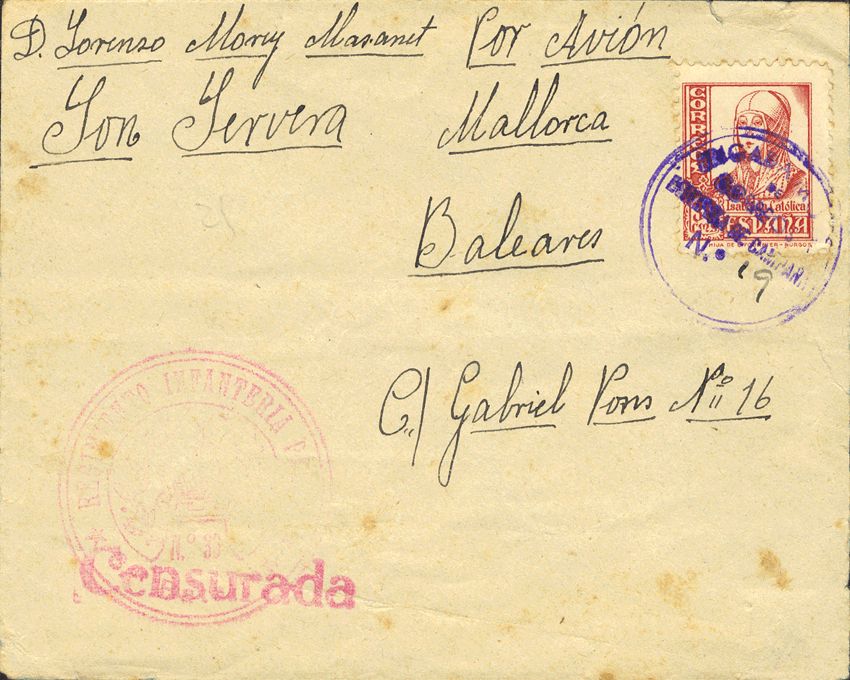 D. Lorenzo Morey Masanet Por Avión
Son Servera Mallorca
Baleares
C/ Gabriel Pons Nº 16
CORREOS
Isabel la Católica
ESPAÑA
HIJA DE BURGOS
DE CAMPAÑA
N. 19
REGIMIENTO INFANTERIA
N.º
Censurada